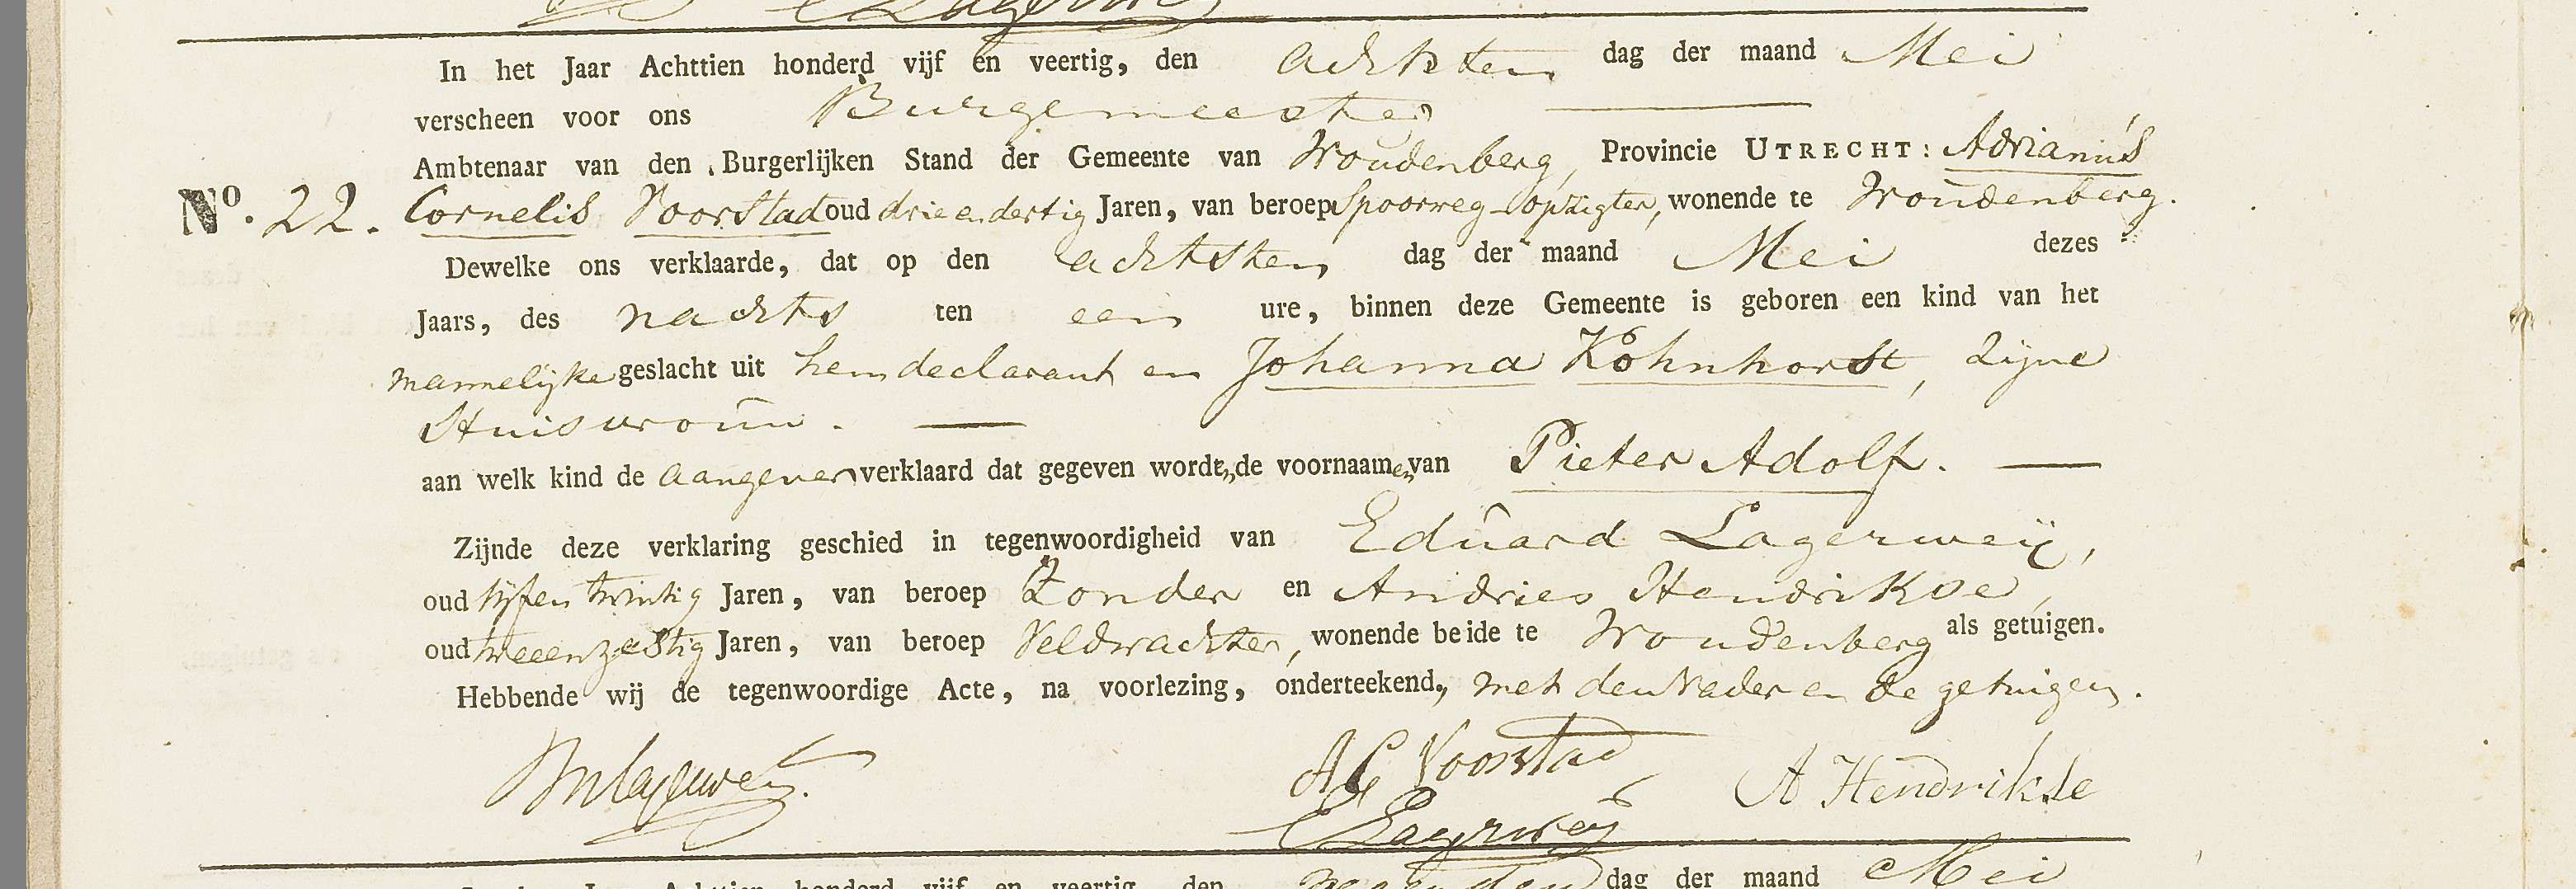 In het Jaar Achttien honderd vijf en veertig, den achtsten dag der maand Mei
verscheen voor ons Burgemeester
Ambtenaar van den Burgerlijken Stand der Gemeente van Woudenberg, Provincie UTRECHT: Adrianus
No. 22. Cornelis Voorstad oud drie en dertig Jaren, van beroep Spoorweg-opzigter, wonende te Woudenberg.
Dewelke ons verklaarde, dat op den achtsten dag der maand Mei dezes
Jaars, des nachts ten een ure, binnen deze Gemeente is geboren een kind van het
mannelijke geslacht uit hem declarant en Johanna Kohnhorst, zijne
Huisvrouw.
aan welk kind de aangever verklaard dat gegeven wordt, de voornaamen van Pieter Adolf.
Zijnde deze verklaring geschied in tegenwoordigheid van Eduard Lagerweij,
oud vijfen twintig Jaren, van beroep Zonder en Andries Hendrikse,
oud tweeenzestig Jaren, van beroep Veldwachter, wonende beide te Woudenberg als getuigen.
Hebbende wij de tegenwoordige Acte, na voorlezing, onderteekend, met den Vader en de getuigen.
AC Voorstad
A Hendrikse
ELagerweij
dag der maand Mei